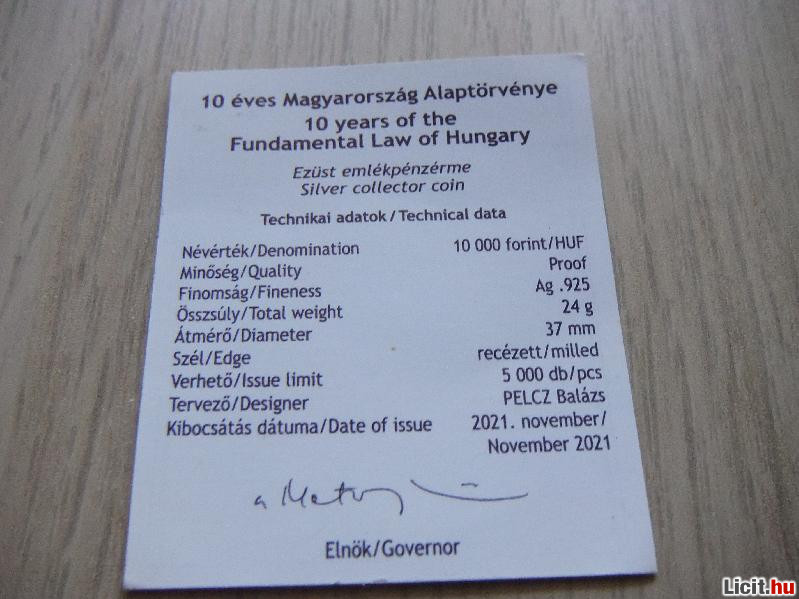 10 éves Magyarország Alaptörvénye
10 years of the
Fundamental Law of Hungary
Ezüst emlékpénzérme
Silver collector coin
Technikai adatok / Technical data
Névérték/Denomination 10 000 forint/HUF
Minőség/Quality Proof
Finomság/Fineness Ag .925
Összsúly/Total weight 24 g
Átmérő/Diameter 37 mm
Szél/Edge recézett/milled
Verhető/Issue limit 5 000 db/pcs
Tervező/Designer PELCZ Balázs
Kibocsátás dátuma/Date of issue 2021. november/
November 2021
Elnök/Governor
Licit.hu